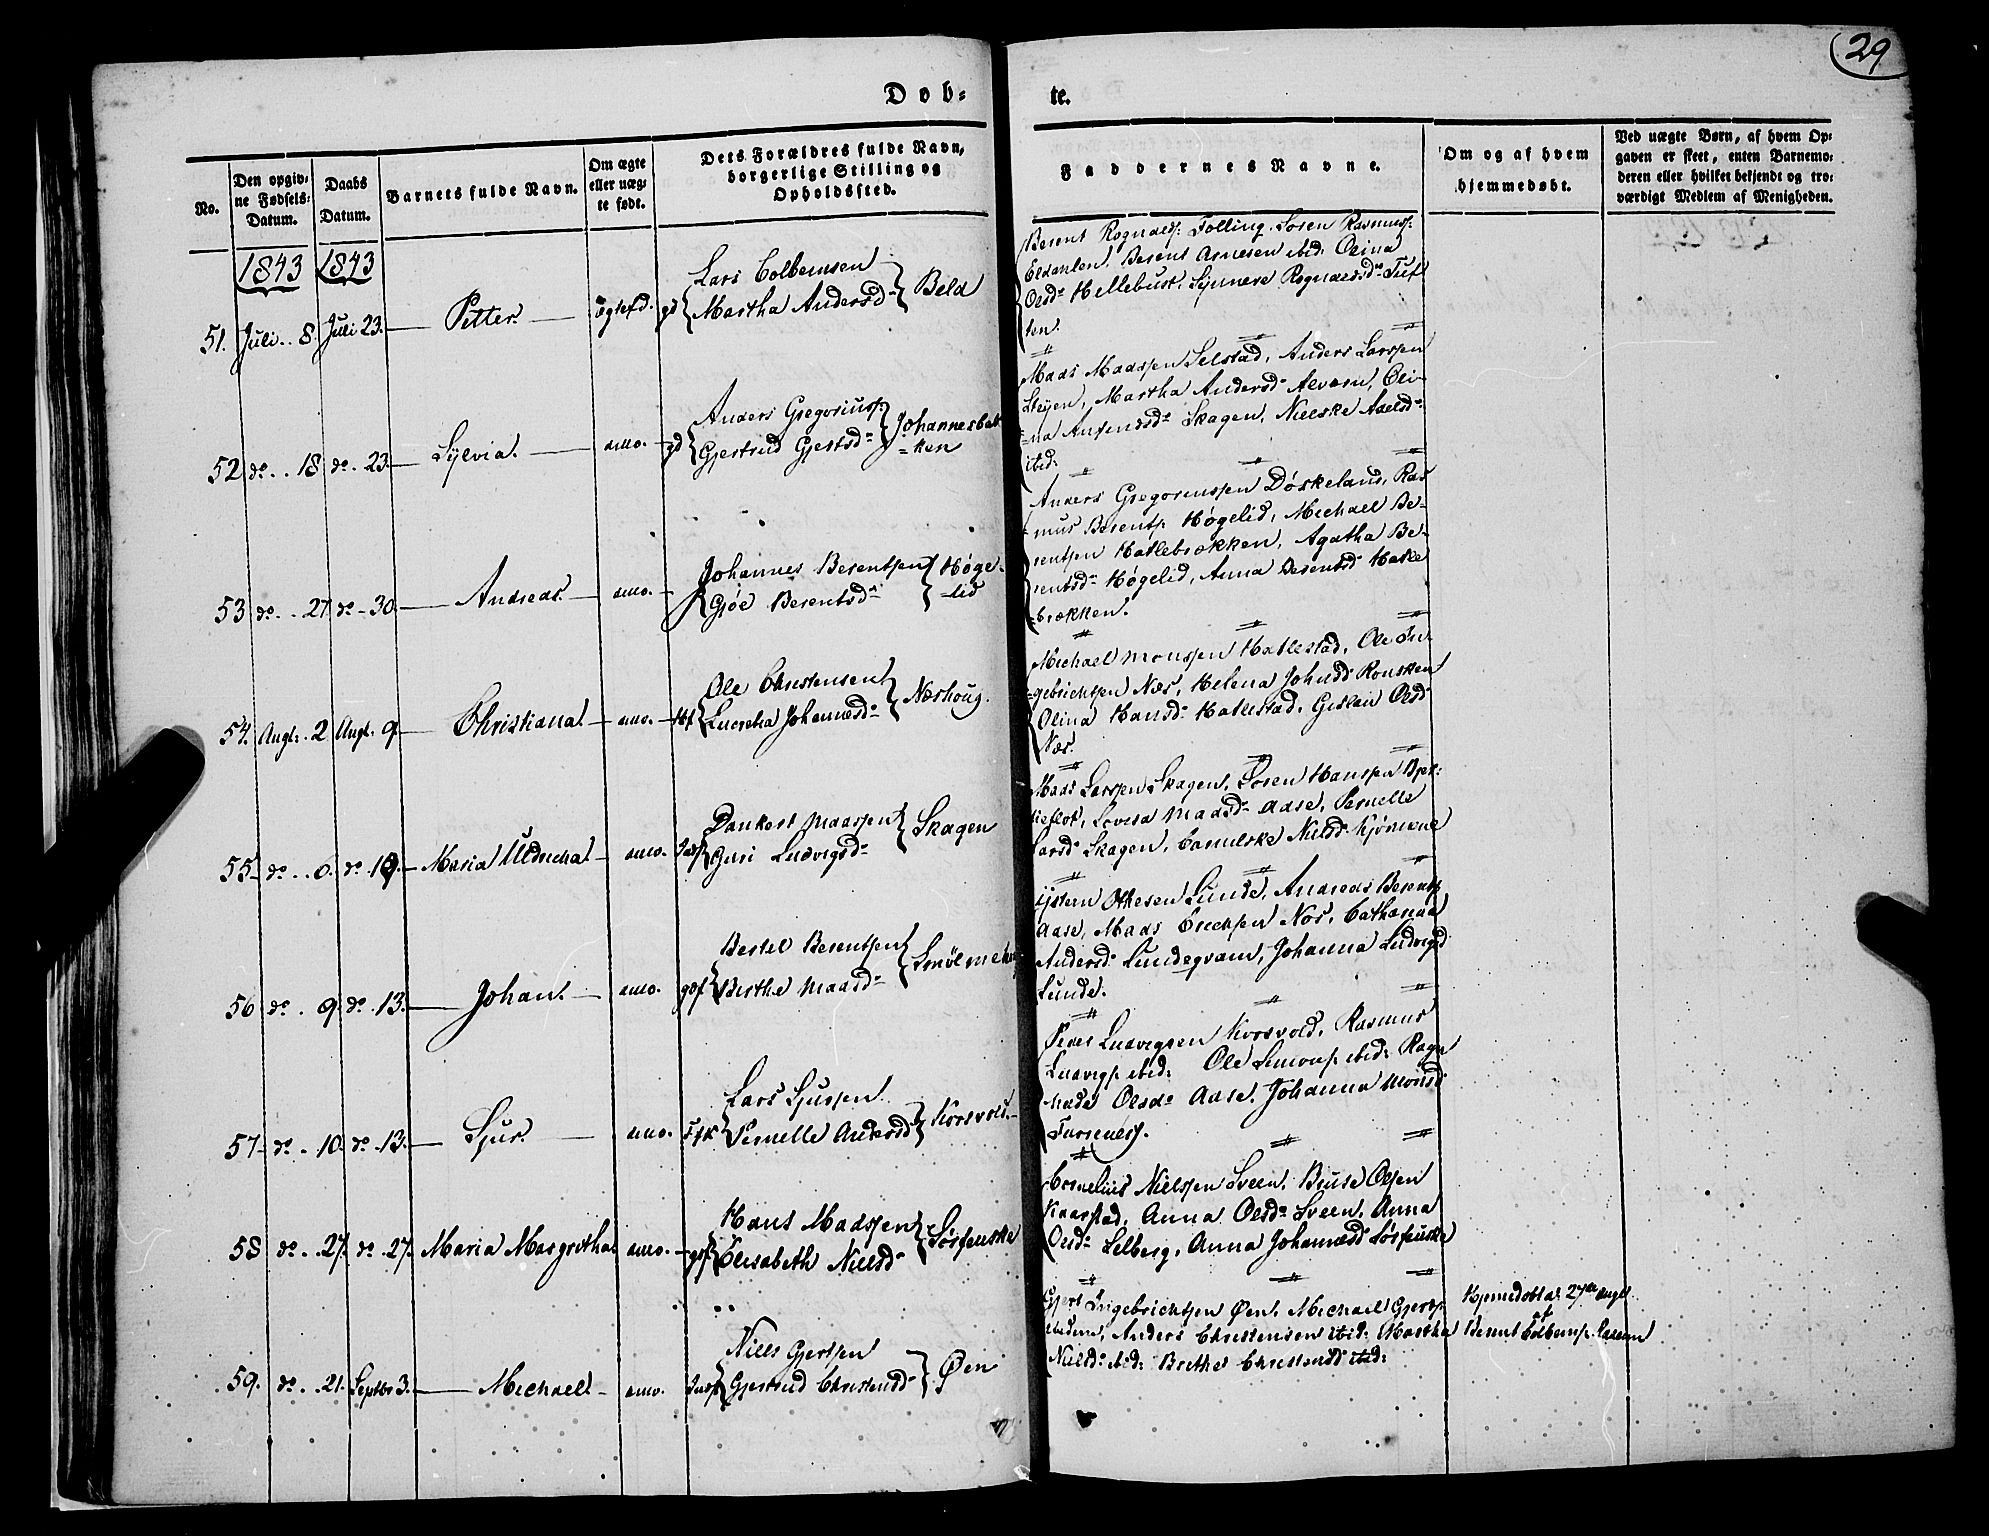 29
Døb-
te.
No.
Den opgiv-
ne Fødsels-
Datum.
Daabs
Datum.
Barnets fulde Navn.
Om ægte
eller uæg-
te født.
Dets Forældres fulde Navn,
borgerlige Stilling og
Opholdssted.
Faddernes Navne.
Om og af hvem
hjemmedøbt.
Ved uægte Børn, af hvem Op-
gaven er skeet, enten Barnemo-
deren eller hvilket bekjendt og tro-
værdigt Medlem af Menigheden.
1843 1843
51. Juli 8. Juli 23. Petter. ægtefd. gd
Lars Colbensen
Martha Andersd
Beld
Berent Rognalds. Folling. Søren Rasmuss.
Berent Arnesen ibid: Olina
Olsd Hellebust, Synneve Rognaldsd Tuf-
ten.
52 do 18 do 23. Sylvia. anno. gd
Anders Gregoriuss.
Gjertrud Gjertsd
Johannesbak-
ken
Mads Madssen Selstad, Anders Larssen
Martha Andersd Alværn, Oli-
na Skagen, Nielske Axelsd
ibid:
53 do 27 do 30. Andreas. anno.
Johannes Berentsen
Gjøe Berentsd
Høge-
lid
Anders Gregoriussen Døskeland, Ras-
mus Berents. Høgelid, Michael Be-
rentsen Hatlebrækken, Agatha Be-
rentsd Høgelid, Anna Berentsd Hatle
brækken.
54. Augt. 2 Augt. 9. Christiana. anno. Hf
Ole Christensen
Lucretia Johannesd
Næshoug.
Michael Monssen Hatlestad, Ole In-
gebrichtsen Næs, Helena Johnsd
Olina Hansd Hatlestad, Olsd
Næs.
55 do 6. do 10. Maria Uldricha. anno.
Dankert Madssen
Guri Ludvigsd
Skagen
Mads Larssen Skagen, Søren Hanssen
Lovisa Madsd Aase, Pernelle
Larsd Skagen, Nielsd
56 do 9. do 13. Johan. anno. gdf
Bertel Berentsen
Berthe Madsd
Othesen Lunde, Andreas Berents.
Aase, Mads Erichsen Nos, Catharina
Andersd Lundeqvam, Johanna Ludvigsd
Lunde.
57 do 10. do 13. Sjur. anno.
Lars Sjursen.
Pernelle Andersd
Korsvold.
Peder Ludvigsen Korsvold, Rasmus
Ludvigs. ibid: Ole ibid: Ragn
Olsd Aase, Johanna Monsd
58 do 27. do 27. Maria Margretha anno. gdf
Hans Madssen
Elisabeth Nielsd
Sørfenske
Cornelius Nielssen Sveen, Olsen
Kaarstad, Anna Olsd Sveen, Anna
Olsd Selberg, Anna Johannesd Sørfenske
59. do 21. Septbr 3. Michael. anno.
Niels Gjertsen
Gjertrud Christensd
Øen
Gjert Ingebrichtsen Øen, Michael Gjerts.
Anders Christensen ibid: Martha
Nielsd ibid: Berthe Christensd ibid:
Hjemedøbt d. 27de Augt
af
Berent